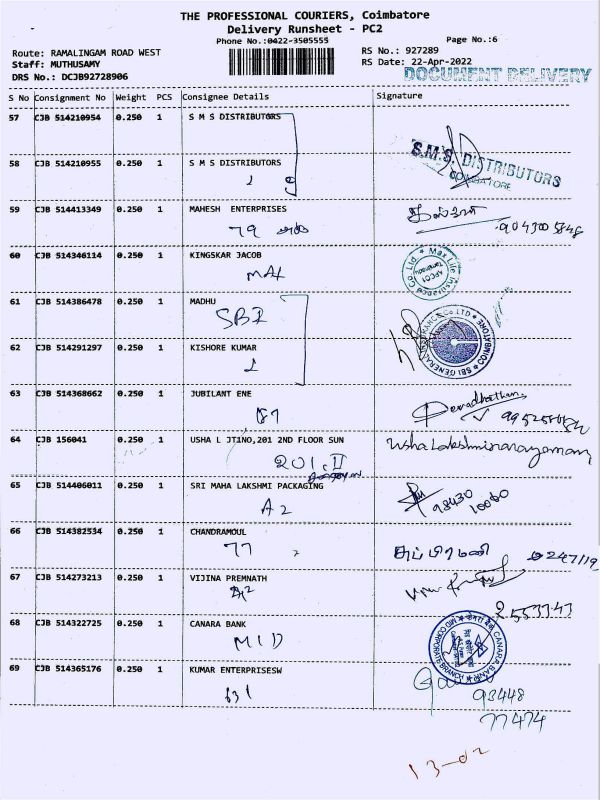 THE PROFESSIONAL COURIERS, Coimbatore
Delivery Runsheet - PC2
Phone No.:0422-3505555
Page No.:6
Route: RAMALINGAM ROAD WEST
RS No.: 927289
Staff: MUTHUSAMY
RS Date: 22-Apr-2022
DRS No.: DCJB92728906
DOCUMENT DELIVERY
S No Consignment No Weight PCS Consignee Details Signature
57 CJB 514210954 0.250 1 S M S DISTRIBUTORS
58 CJB 514210955 0.250 1 S M S DISTRIBUTORS
S.M.S. DISTRIBUTORS
COIMBATORE
59 CJB 514413349 0.250 1 MAHESH ENTERPRISES
79
60 CJB 514346114 0.250 1 KINGSKAR JACOB
MAX
Max Life Insurance Co Ltd
61 CJB 514386478 0.250 1 MADHU
SBI
SBI GENERAL INSURANCE Co LTD
COIMBATORE
62 CJB 514291297 0.250 1 KISHORE KUMAR
63 CJB 514368662 0.250 1 JUBILANT ENE
87
64 CJB 156041 0.250 1 USHA L JTINO,201 2ND FLOOR SUN
Usha Lakshminarayanan
201, II
65 CJB 514406011 0.250 1 SRI MAHA LAKSHMI PACKAGING
A2
98430
10060
66 CJB 514382534 0.250 1 CHANDRAMOUL
77
சுப்பிரமணி
67 CJB 514273213 0.250 1 VIJINA PREMNATH
2553343
68 CJB 514322725 0.250 1 CANARA BANK
MID
CANARA BANK
MID CORPORATE BRANCH
69 CJB 514365176 0.250 1 KUMAR ENTERPRISESW
631
93448
77474
13-02